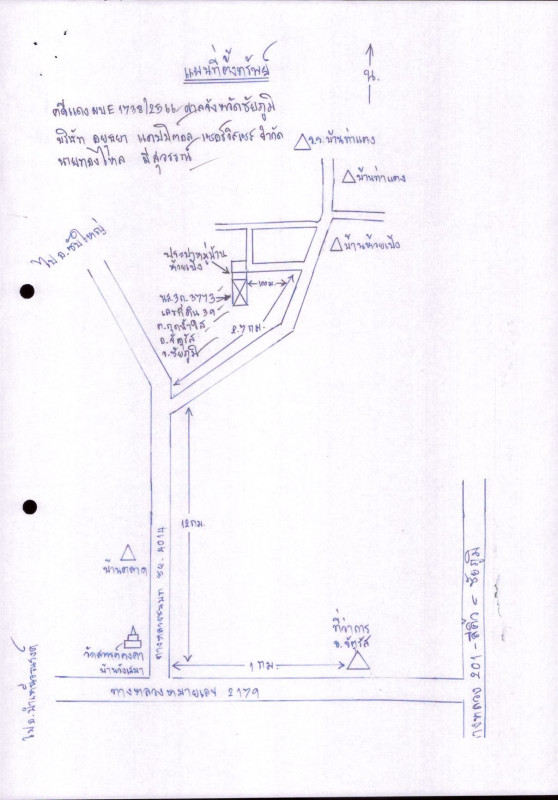 แผนที่ตั้งทรัพย์
น.
คดีแดง ผบE 1738/2566 ศาลจังหวัดชัยภูมิ
บริษัท อยุธยา แคปปิตอล เซอร์วิสเซส จำกัด
นายทองไหล
ร.ร.บ้านท่าแตง
บ้านท่าแตง
บ้านห้วยเป้ง
ไป อ.ซับใหญ่
ประปาหมู่บ้าน
ห้วยเป้ง
100 ม.
นส.3ก. 3773
เลขที่ดิน 39
ต.กุดน้ำใส
อ.จัตุรัส
จ.ชัยภูมิ
2.7 กม.
12 กม.
ทางหลวงชนบท ชย. 4014
บ้านตลาด
ที่ว่าการ
อ.จัตุรัส
1 กม.
บ้านวังเสมา
ทางหลวงหมายเลข 2179
ทางหลวง 201 - สีคิ้ว - ชัยภูมิ